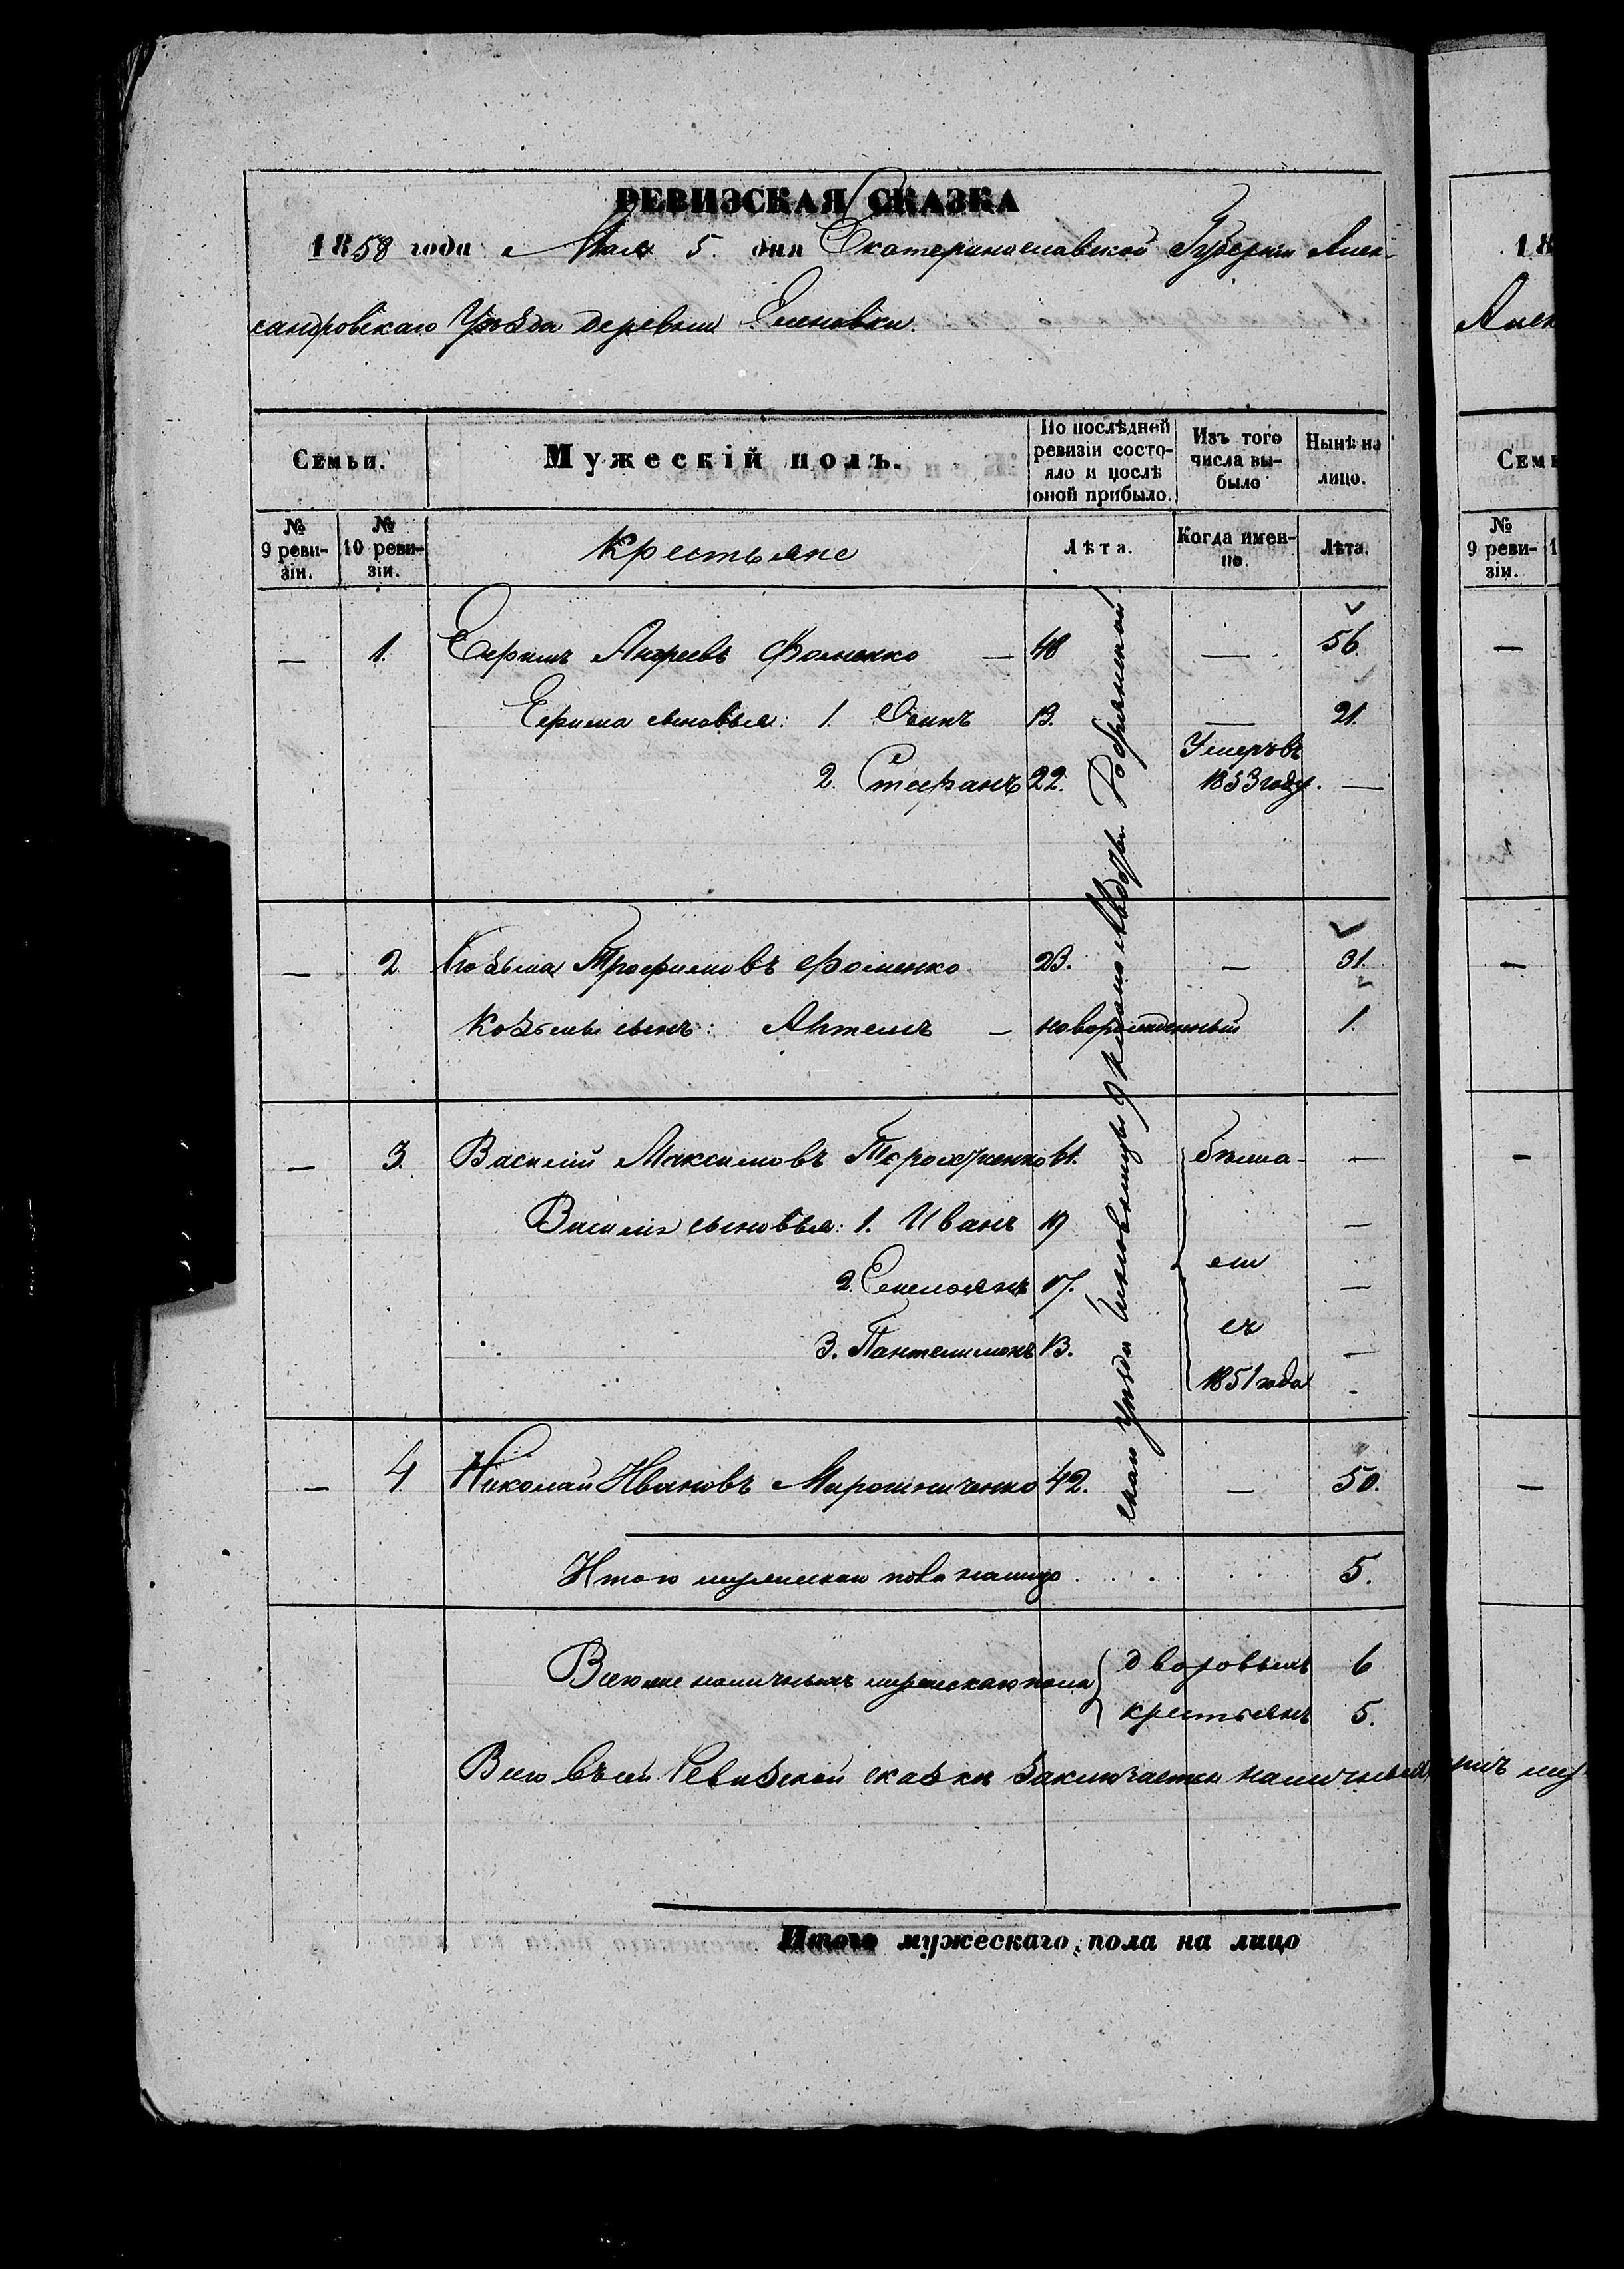 РЕВИЗСКАЯ СКАЗКА
1858 года Мая 5. дня Екатеринославской Губернии Алек-
сандровскаго Уѣзда деревни Еленовки.
Семьи.
Мужескій полъ.
По послѣдней ревизіи состо-
яло и послѣ оной прибыло.
Изъ того числа вы-
было
Нынѣ на лицо.
№ 9 реви-
зіи.
№ 10 реви-
зіи.
Крестьяне
Лѣта.
Когда имен-
но.
Лѣта.
— 1. Ефимъ Андреевъ Фоменко — 48 — 56.
Ефима сыновья: 1. Осипъ 13. — 21.
2. Стефанъ 22. Умеръ въ 1853 году. —
— 2 Козьма Трофимовъ Фоменко 23. — 31.
Козьмы сынъ: — новорожденный 1.
— 3. Василій Максимовъ 61. бѣжа- —
Василія сыновья: 1. Иванъ 19 —
2. Емельянъ 17. ли —
3. Пантелимонъ 13. съ —
1851 года -
— 4 Николай Ивановъ Мирошниченко 42. — 50.
скаго Уѣзда
Итого мужескаго пола налицо . . . . 5.
Всего же наличныхъ мужескаго пола { дворовыхъ 6
крестьянъ 5.
Всего въ сей Ревизской сказки заключается наличныхъ
Итого мужескаго пола на лицо
18
Алек
Семь
№ 9 реви-
зіи.
1
—
—
—
—